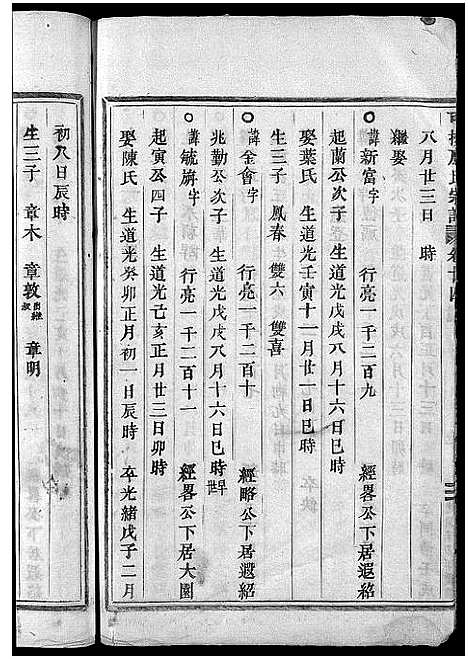 八月廿三日 時
繼娶
諱新富字 行亮一千二百九 經畧公下居遐紹
起蘭公次子 生道光戊戌八月十六日巳時
娶葉氏 生道光壬寅十一月廿一日巳時 卒缺
生三子 鳳春 雙六 雙喜
諱金會字 行亮一千二百十 經略公下居遐紹
兆勤公次子 生道光戊戌八月十六日巳時
諱毓 字 行亮一千二百十一 經畧公下居大園
起寅公四子 生道光己亥正月廿三日卯時
娶陳氏 生道光癸卯正月初一日辰時 卒光緒戊子二月
初八日辰時
生三子 章木 章敦出繼 章明